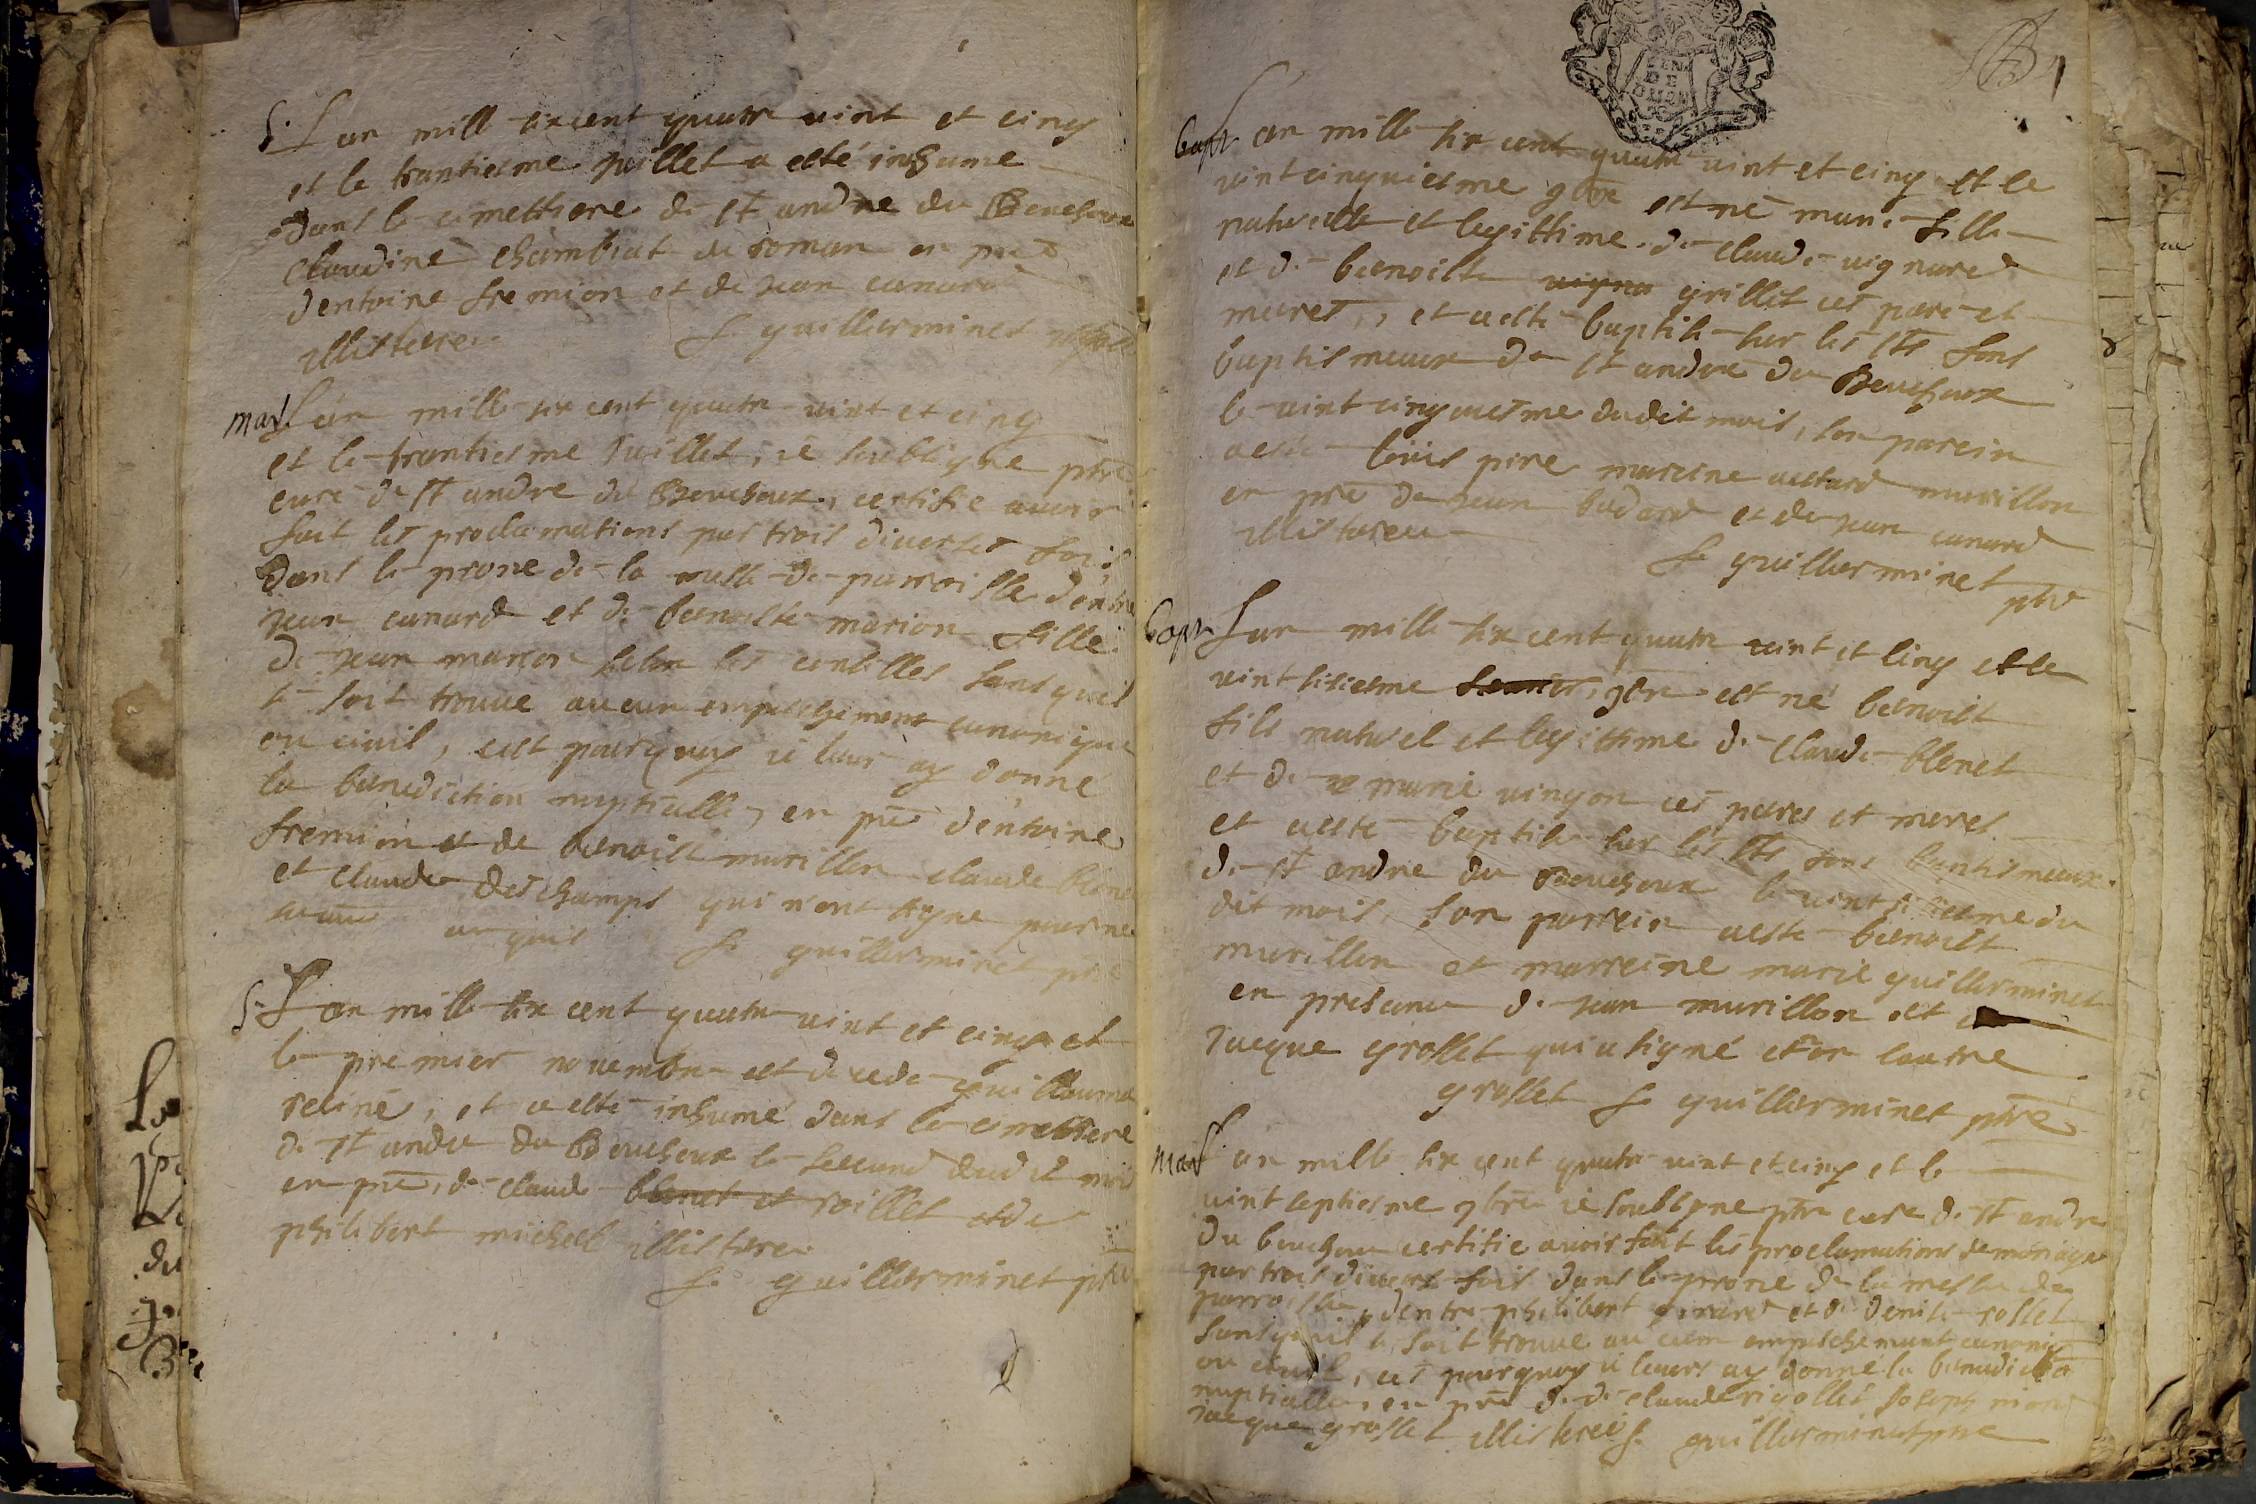 S. Lan mill six cent quatre vint et cinq
et le trantiesme juillet a esté inhume
dans le cimettiere de st andre du Bouchoux
Claudine chambiat de roman en pnce
dentoine fremion et de jean canard
illisterez f guillerminet
mar Lan mille six cent quatre vint et cinq
et le trantiesme Juillet, ie soubsigne ptre
curé de st andre du Bouchoux, certifie avoir
fait les proclamations par trois diverses fois
dans le prone de la messe de parroisse dentre
jean canard et de benoiste marion fille
de jean marion les conselles sans quil
se soit trouvé aucun empeschement canonique
ou civil, cest pourquoy ie leur ay donné
la benediction nuptialle, en pnce dentoine
fremion et de benoist murillon claude blene
et claude deschamps qui n'ont signe pour ne
enquis f guillerminet ptre
S. Lan mille six cent quatre vint et cinq et
le premier novembre est decede guillaume
reliné, et a esté inhumé dans le cimettiere
de st andre du Bouchoux le second dudit moi
en pnce, de claude blenet et roillet et de
philibert michel illisterez
f. guillerminet ptre
bapt Lan mille six cent quatre vint et cinq et le
vintcinquiesme 9bre est né marie fille
naturelle et legittime de claude vignard
et de benoiste vigna grillet ces pere et
meres, et a esté baptisé sur les sts fons
baptismaux de st andre du Bouchoux
le vintcinquiesme dudit mois, son parein
a esté louis pire mareine murillon
en pnce de jean badard et de jean canard
illisterez
f guillerminet ptre
bapt Lan mille six cent quatre vint et cinq et le
vintsisiesme 9bre est né benoist
fils naturel et legittime de claude blenet
et de marie vingon ces peres et meres
et a esté baptisé sur les sts fons baptismaux
de st andre du Bouchoux le vintsisiesme du
dit mois, son parrein a esté benoist
murillon et marreine marie guillerminet
en presence de jean murillon et
Jacque grosset qui a signé et non lautre
grosset f guillerminet ptre
mar Lan mille six cent quatre vint et cinq et le
vintseptiesme 9bre ie soubsigne ptre cure de st andre
du bouchoux certifie avoir fait les proclamations de mariage
par trois divers fois dans le prone de la messe de
parroisse, dentre philibert girard et de denise rosset
sans quil se soit trouve aucum empeschement canonic
ou civil, cest pourquoy ie leurs ay donne la benediction
nuptialle, en pnce de claude rigollet Joseph
Jacque grosset illisterés f. guillerminet ptre